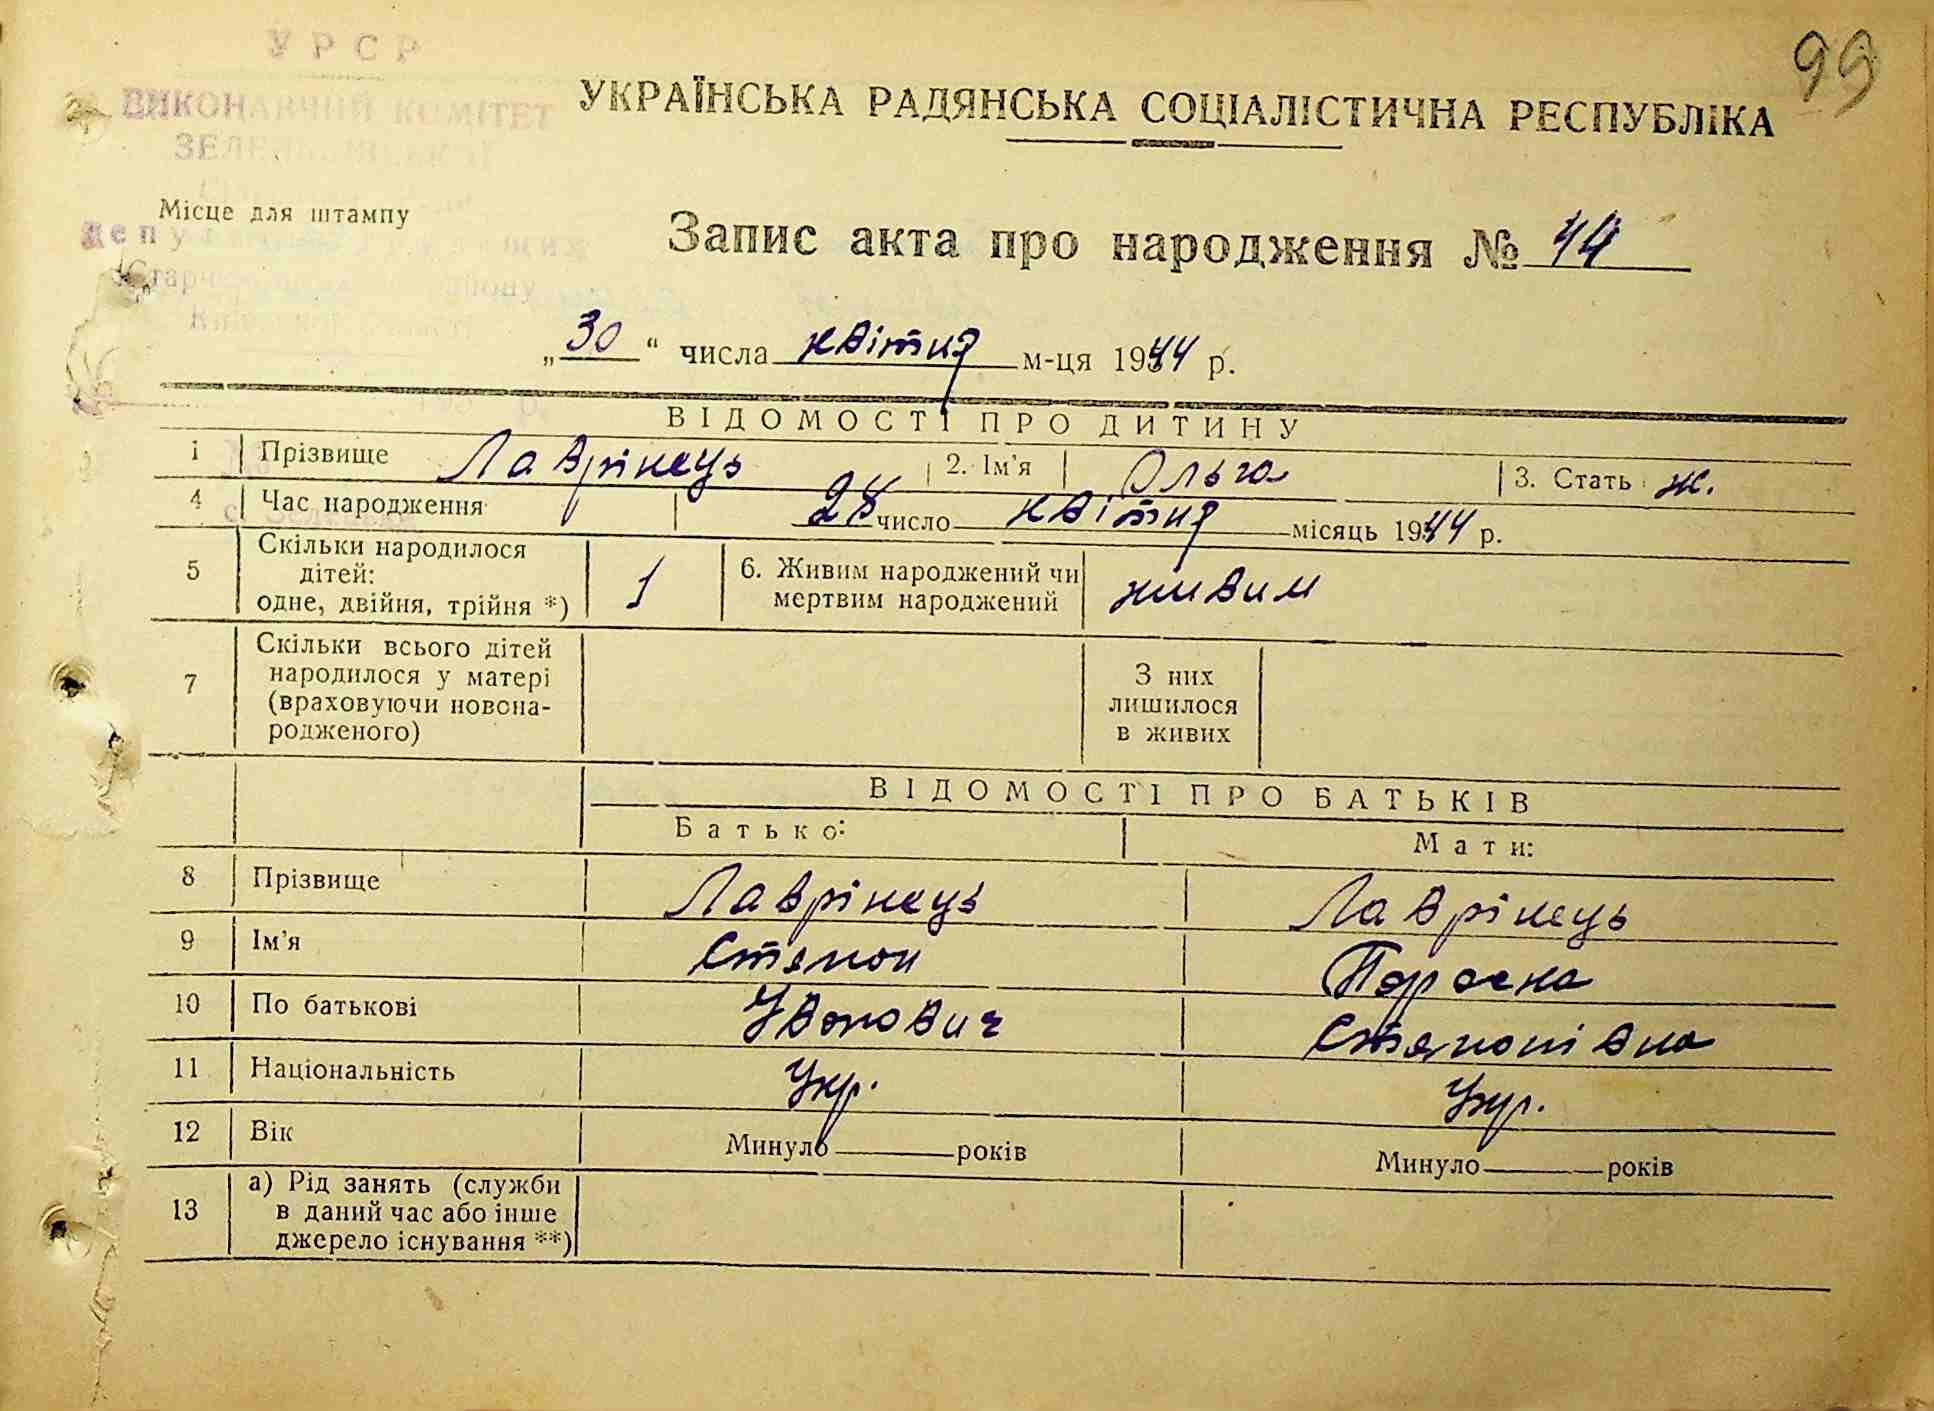 99
УРСР
ВИКОНАВЧИЙ КОМІТЕТ
УКРАЇНСЬКА РАДЯНСЬКА СОЦІАЛІСТИЧНА РЕСПУБЛІКА
Місце для штампу
Запис акта про народження № 44
„30“ числа квітня м-ця 1944 р.
ВІДОМОСТІ ПРО ДИТИНУ
1 Прізвище Лаврінець 2. Ім'я Ольга 3. Стать ж.
4 Час народження 28 число квітня місяць 1944 р.
5 Скільки народилося дітей: одне, двійня, трійня *) 1 6. Живим народжений чи мертвим народжений живим
7 Скільки всього дітей народилося у матері (враховуючи новонародженого) З них лишилося в живих
ВІДОМОСТІ ПРО БАТЬКІВ
Батько: Мати:
8 Прізвище Лаврінець Лаврінець
9 Ім'я Степан Параска
10 По батькові Іванович Степанівна
11 Національність Укр. Укр.
12 Вік Минуло років Минуло років
13 а) Рід занять (служби в даний час або інше джерело існування **)